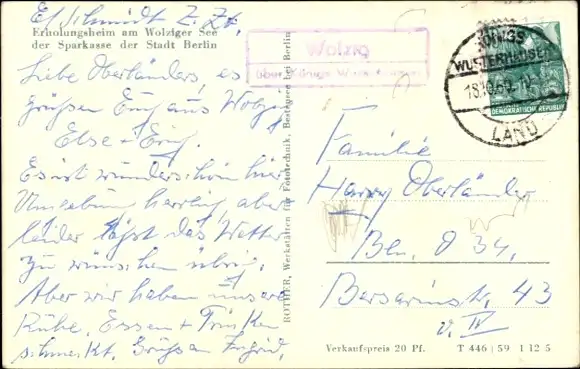 E. Schmidt z. Zt.
Erholungsheim am Wolziger See
der Sparkasse der Stadt Berlin
Liebe Oberländers, es
grüßen Euch aus Wolzig
Else + Erich.
Es ist wunderschön hier,
Umgebung herrlich, aber
leider läßt das Wetter
zu wünschen übrig.
Aber wir haben unsere
Ruhe, Essen + Trinken
schmeckt. Grüßen
ROTHER, Werkstätten für Fototechnik, Bestagere bei Berlin
Wolzig
über Königs Wusterhausen
KÖNIGS
WUSTERHAUSEN
LAND
DEMOKRATISCHE REPUBLIK
Familie
Harry Oberländer
Bln. O 34,
Bersarinstr. 43
v. IV
Verkaufspreis 20 Pf. T 446 | 59 1 12 5